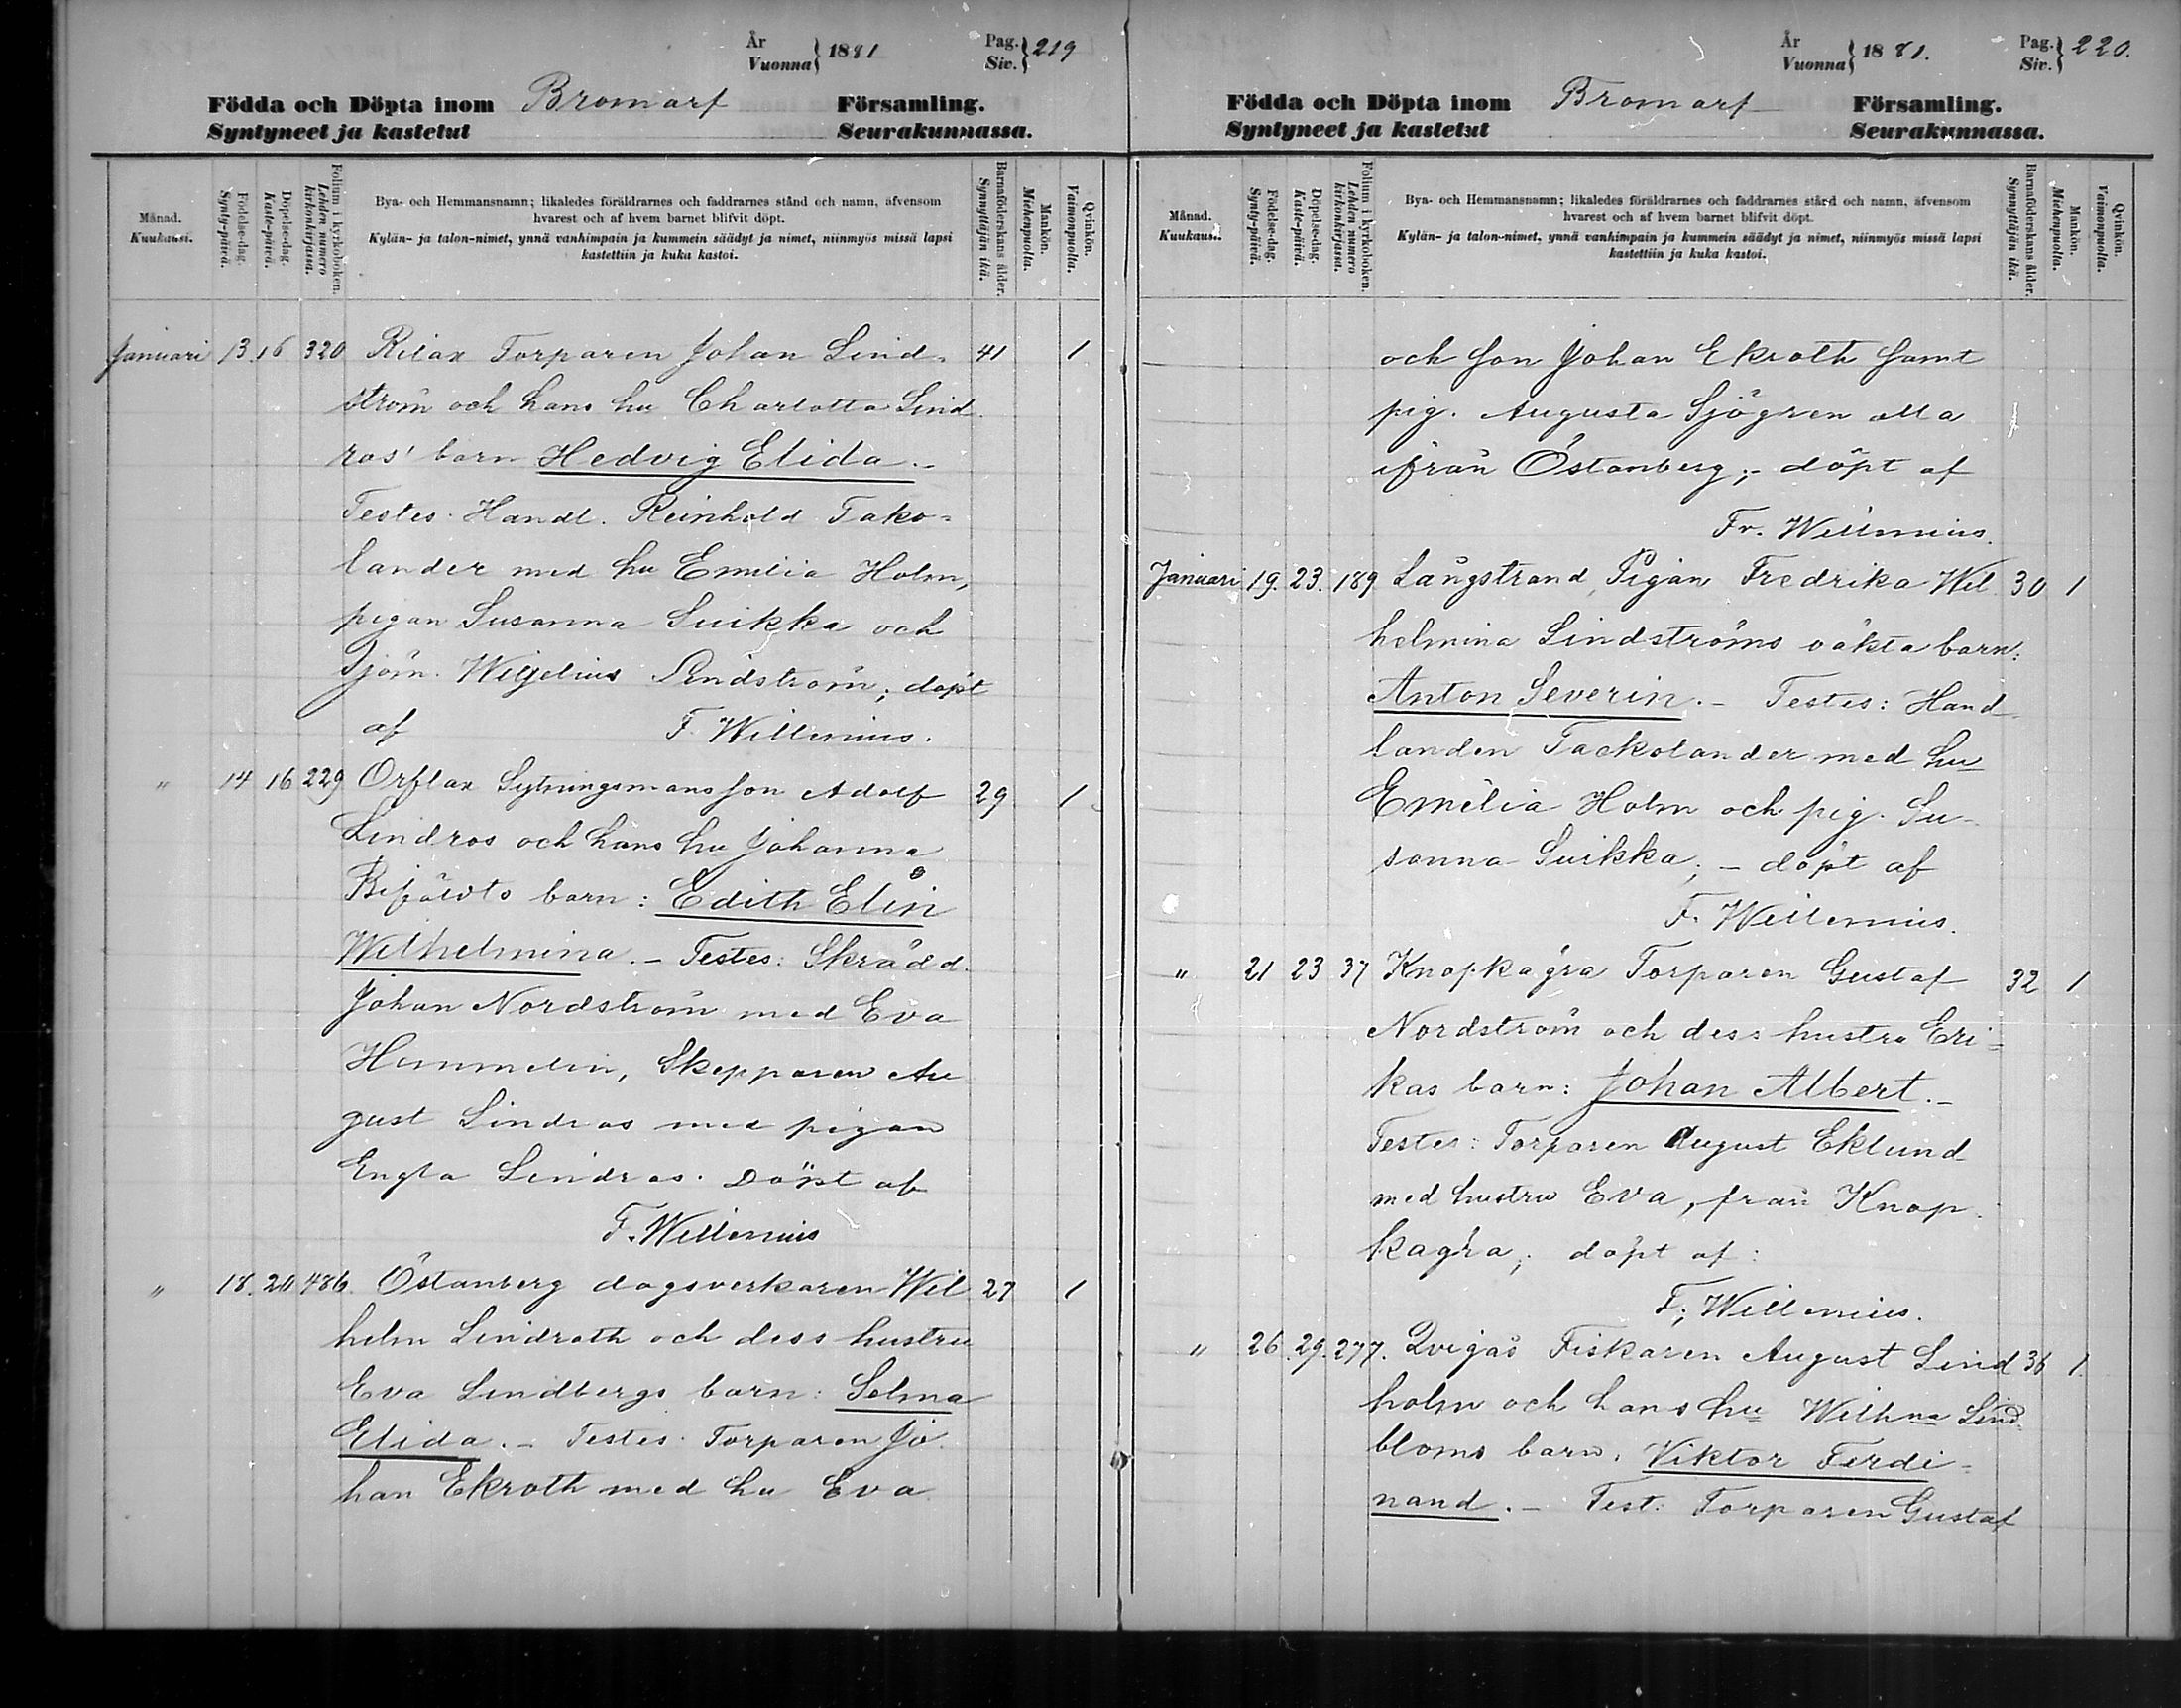 År
Vuonna } 1881
Pag.
Siv. } 219
Födda och Döpta inom Bromarf Församling.
Syntyneet ja kastetut Seurakunnassa.
Månad.
Kuukausi.
Födelse-dag.
Synty-päivä.
Döpelse-dag.
Kaste-päivä.
Folium i kyrkoboken.
Lehden numero
kirkonkirjassa.
Bya- och Hemmansnamn; likaledes föräldrarnes och faddrarnes stånd och namn, äfvensom
hvarest och af hvem barnet blifvit döpt.
Kylän- ja talon-nimet, ynnä vanhimpain ja kummein säädyt ja nimet, niinmyös missä lapsi
kastettiin ja kuka kastoi.
Barnaföderskans ålder.
Synnyttäjän ikä.
Mankön.
Miehenpuolta.
Qvinkön.
Vaimonpuolta.
Januari 13. 16 320 Rilax Torparen Johan Lind- 41 1
ström och hans hu Charlotta Lind
ros' barn Hedvig Elida.-
Testes. Handl. Reinhold Tako-
lander med hu Emilia Holm,
pigan Susanna Suikka och
Sjöm. Lindström; döpt
af F. Willenius.
" 14 16 229 Orflax Sytningsmansson Adolf 29 1
Lindros och hans hu Johanna
barn: Edith Elin
Wilhelmina.- Testes: Skrädd.
Johan Nordström med Eva
Himmelin, Skepparen Au
gust Lindros med pigan
Engla Lindros. Döpt af
F. Willenius
" 18. 20 486. Östanberg dagsverkaren Wil 27 1
helm Lindroth och dess hustru
Eva Lindbergs barn: Selma
Elida.- Testes. Torparen Jo
han Ekroth med hu Eva
År
Vuonna } 1881.
Pag.
Siv. } 220.
Födda och Döpta inom Bromarf Församling.
Syntyneet ja kastetut Seurakunnassa.
Månad.
Kuukausi.
Födelse-dag.
Synty-päivä.
Döpelse-dag.
Kaste-päivä.
Folium i kyrkoboken.
Lehden numero
kirkonkirjassa.
Bya- och Hemmansnamn; likaledes föräldrarnes och faddrarnes stånd och namn, äfvensom
hvarest och af hvem barnet blifvit döpt.
Kylän- ja talon-nimet, ynnä vanhimpain ja kummein säädyt ja nimet, niinmyös missä lapsi
kastettiin ja kuka kastoi.
Barnaföderskans ålder.
Synnyttäjän ikä.
Mankön.
Miehenpuolta.
Qvinkön.
Vaimonpuolta.
och son Johan Ekroth samt
pig. Augusta Sjögren alla
ifrån Östanberg;- döpt af
Fr. Willenius.
Januari 19. 23. 189 Långstrand, Pigan Fredrika Wil 30 1
helmina Lindströms oäkta barn:
Anton Severin.- Testes: Hand
landen Tackolander med hu
Emilia Holm och pig. Su-
sanna Suikka;- döpt af
F. Willenius.
" 21 23 37 Knopkägra Torparen Gustaf 32 1
Nordström och dess hustru Eri-
kas barn: Johan Albert.-
Testes: Torparen August Eklund
med hustru Eva, från Knop
kagra; döpt af:
F; Willenius.
" 26. 29. 277. Qvigås Fiskaren August Lind 36 1.
holm och hans hu Wilhna Lind
bloms barn: Viktor Ferdi-
nand.- Test: Torparen Gustaf